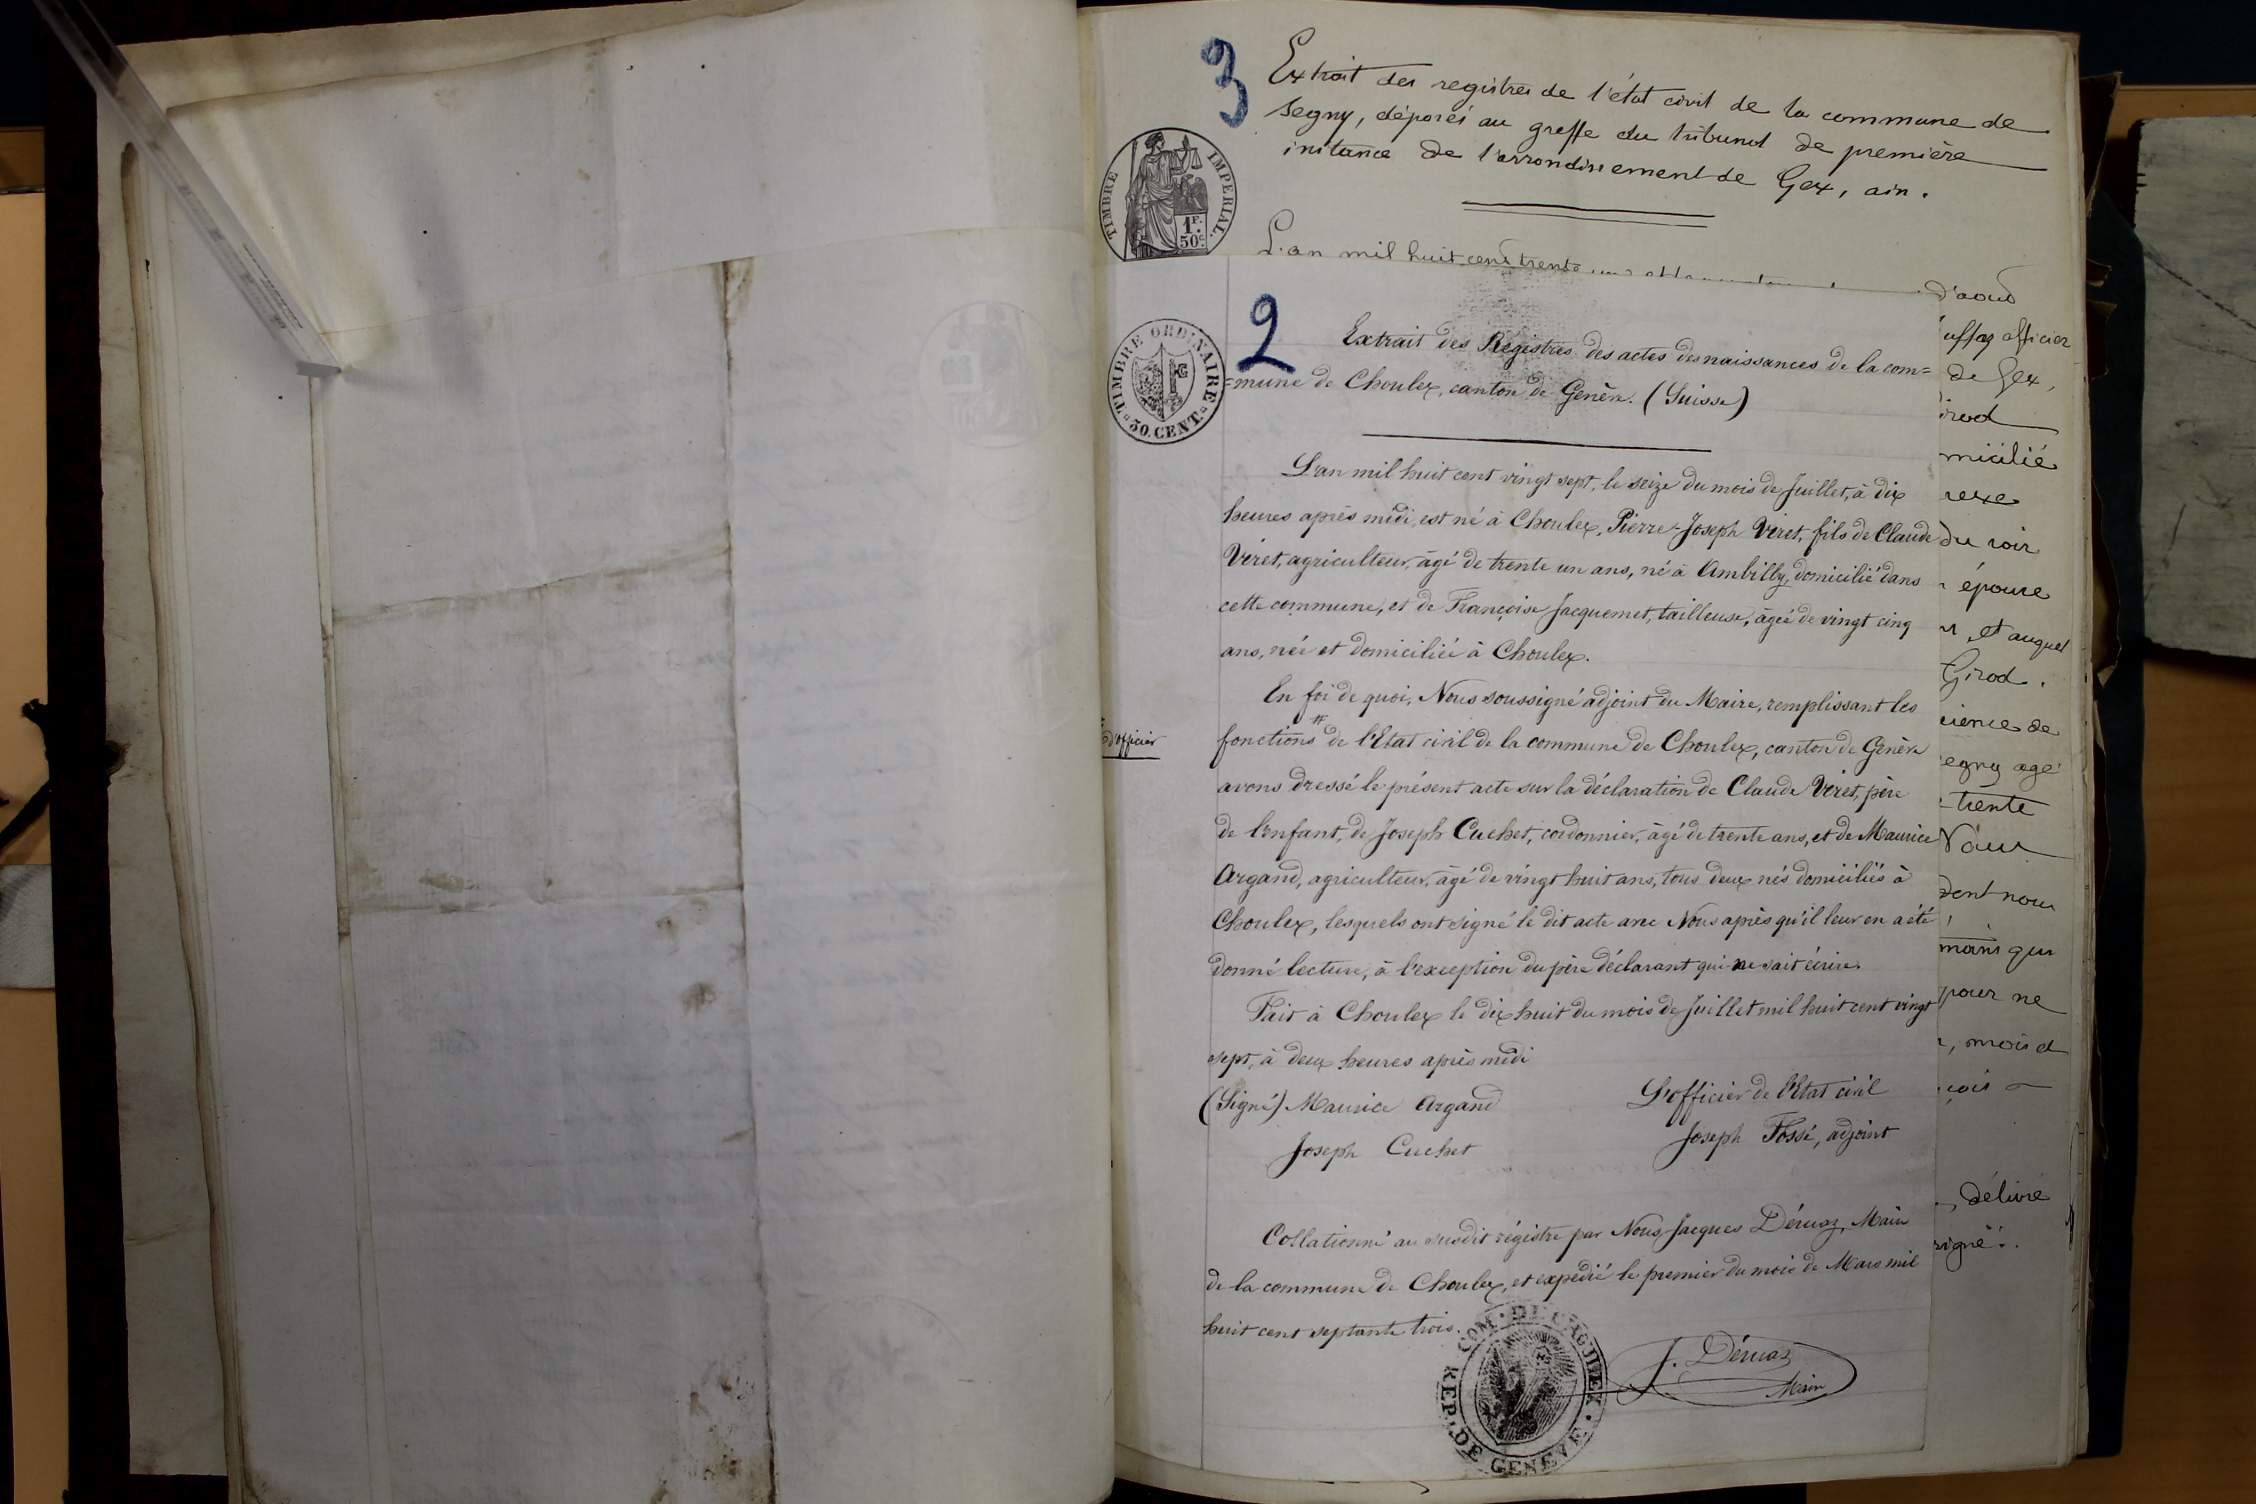 3
Extrait des registres de l'état civil de la commune de
Segny, déposés au greffe du tribunal de première
instance de l'arrondissement de Gex, ain.
TIMBRE IMPERIAL.
1F.
50c.
L'an mil huit cent trente
d'aout
officier
de Gex,
irod
micilié
rexe
du soir
épouse
et auquel
Girod.
cience de
egny agé
trente
Nous
dont nous
mains que
pour ne
, mois et
délivré
signé.
2
TIMBRE ORDINAIRE
50. CENT.
Extrait des Régistres des actes des naissances de la com=
=mune de Choulex, canton de Genève. (Suisse)
L'an mil huit cent vingt sept, le seize du mois de Juillet, à dix
heures après midi, est né à Choulex, Pierre-Joseph Viret, fils de Claude
Viret, agriculteur, âgé de trente un ans, né à Ambilly, domicilié dans
cette commune, et de Françoise Jacquemet, tailleuse, âgée de vingt cinq
ans, née et domiciliée à Choulex.
En foi de quoi, Nous soussigné adjoint du Maire, remplissant les
fonctions # de l'Etat civil de la commune de Choulex, canton de Genève
# d'officier
avons dressé le présent acte sur la déclaration de Claude Viret, père
de l'enfant, de Joseph Cuchet, cordonnier, âgé de trente ans, et de Maurice
Argand, agriculteur, âgé de vingt huit ans, tous deux nés domiciliés à
Choulex, lesquels ont signé le dit acte avec Nous après qu'il leur en a été
donné lecture, à l'exception du père déclarant qui ne sait écrire.
Fait à Choulex le dix huit du mois de Juillet mil huit cent vingt
sept, à deux heures après midi
(Signé) Maurice Argand
L'officier de l'Etat civil
Joseph Cuchet
Joseph Fossé, adjoint
Collationné au susdit régistre par Nous Jacques Déruaz, Maire
de la commune de Choulex, et expédié le premier du mois de Mars mil
huit cent septante trois.
COM. DE CHOULEX. REP. DE GENEVE
J. Déruaz
Maire